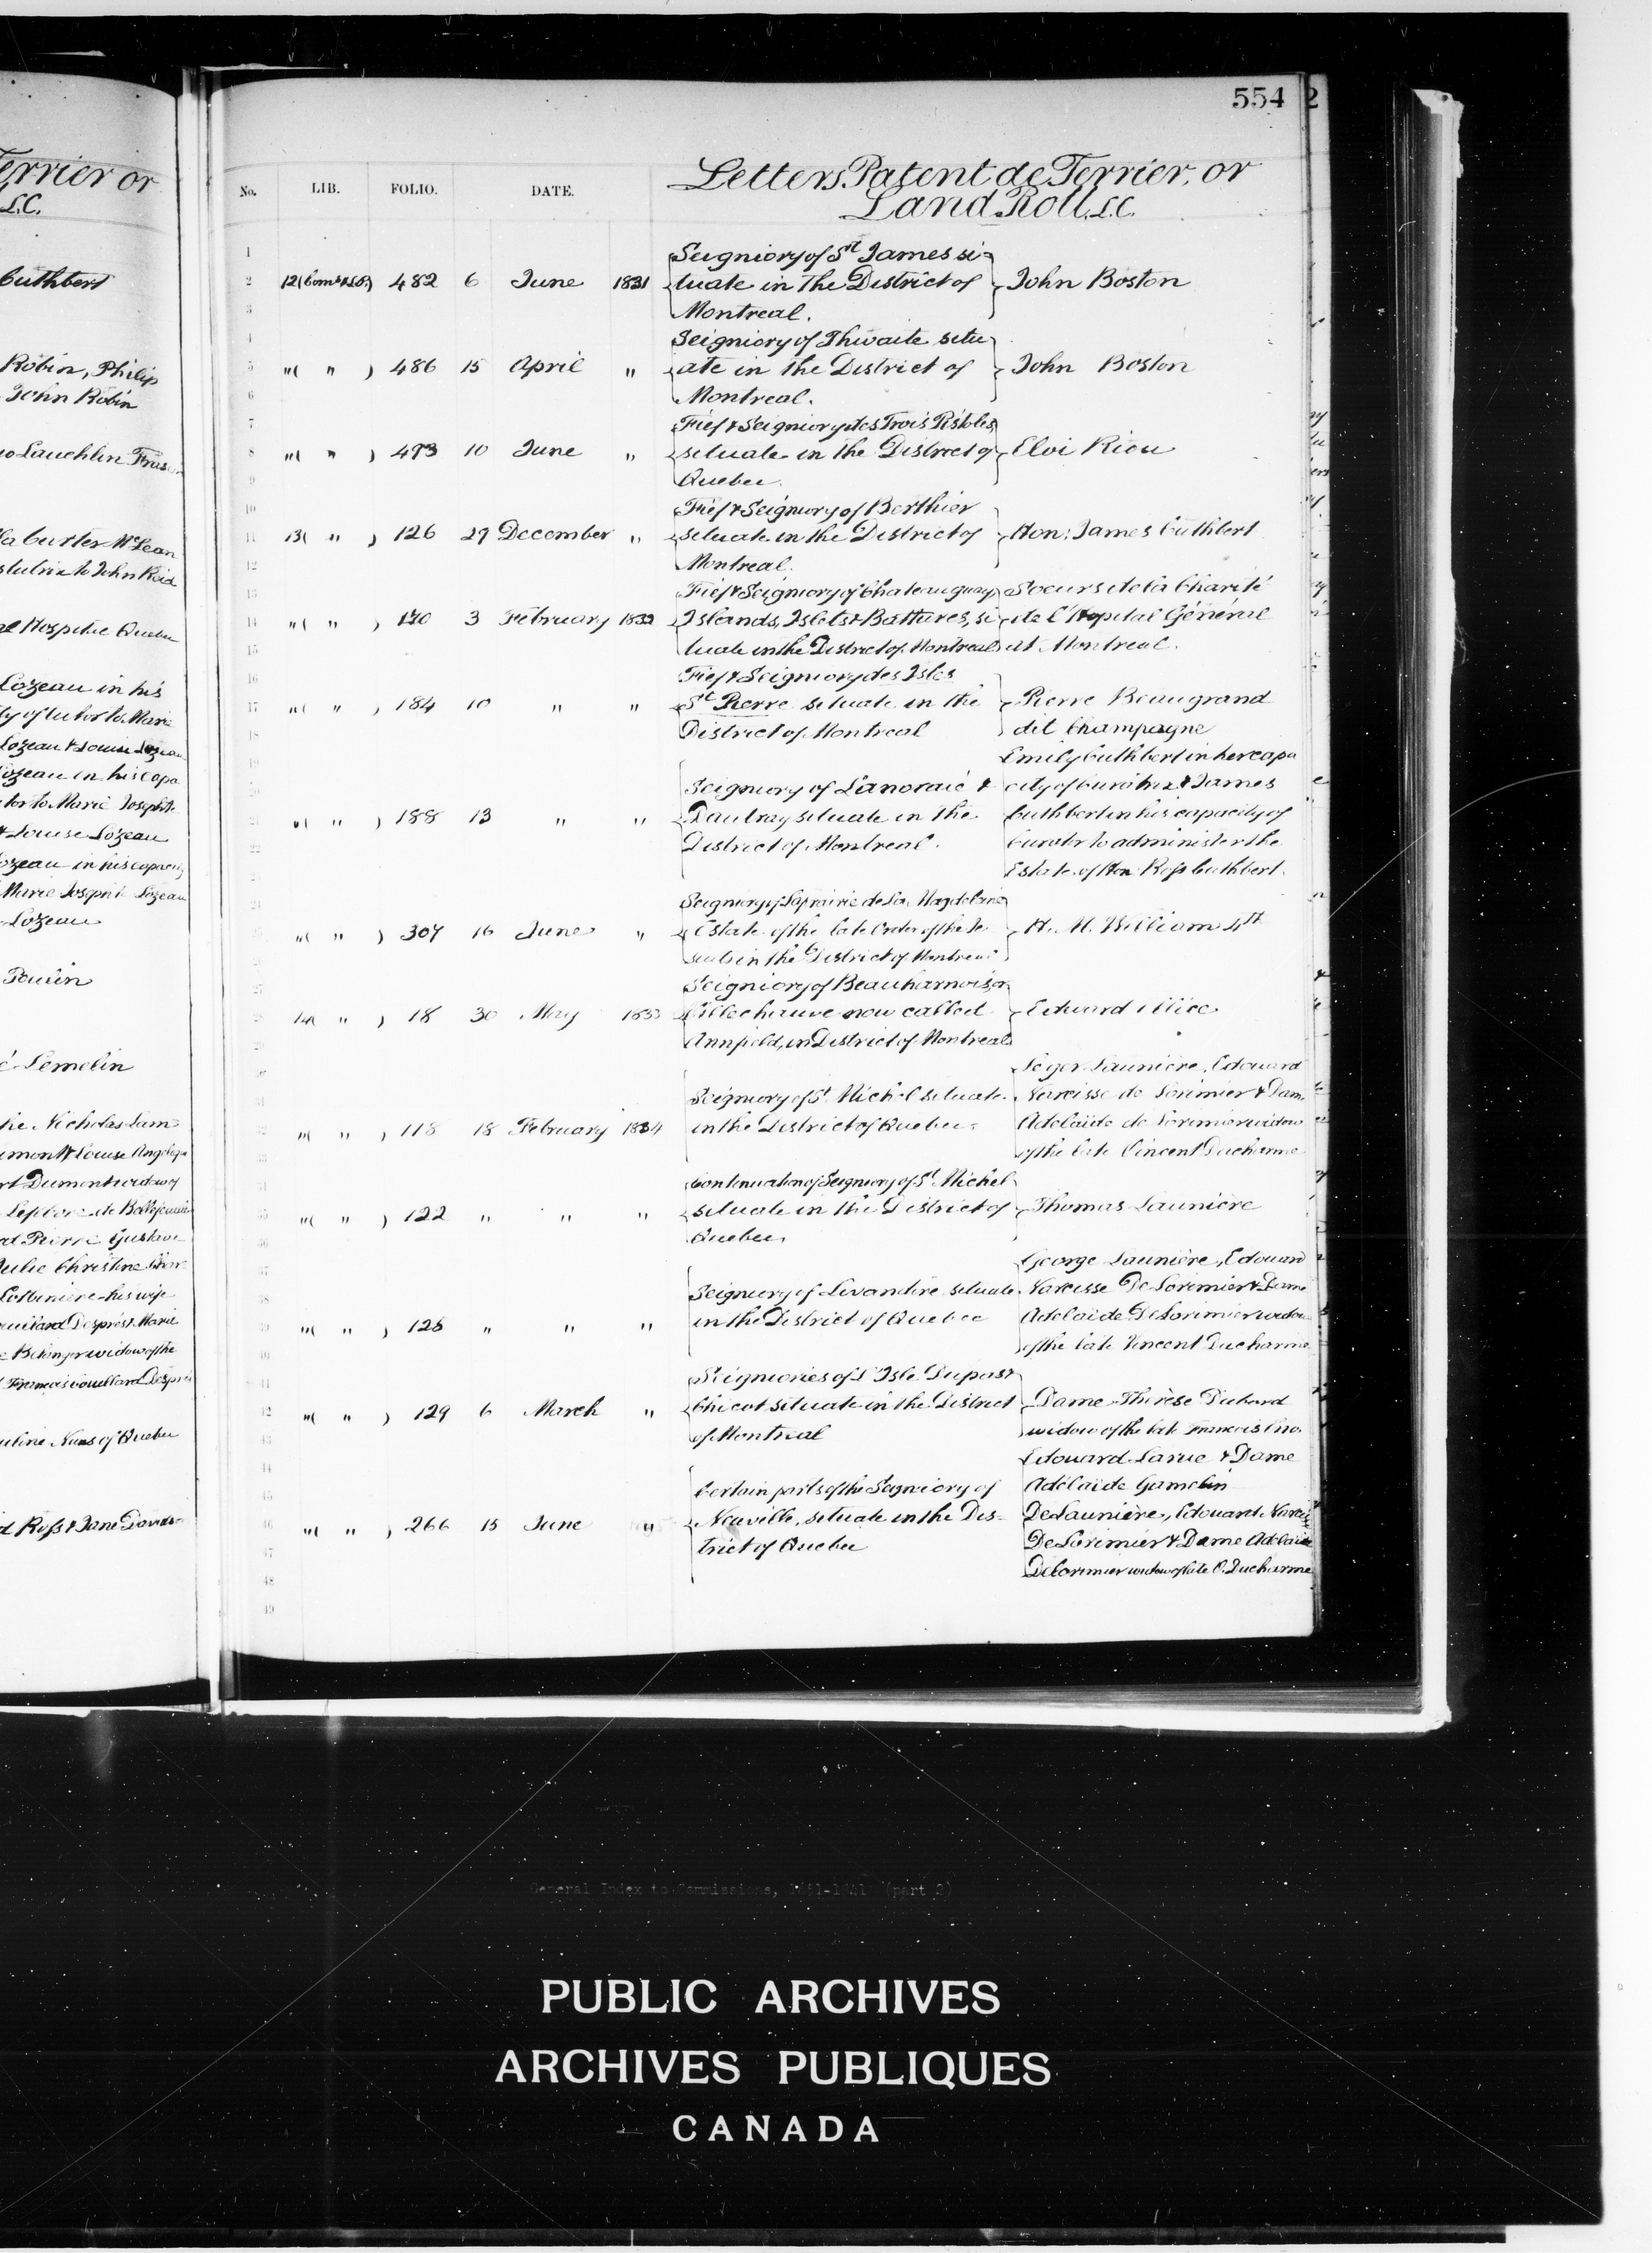 554
Terrier or
L.C.
Cuthbert
Robin, Philip
John Robin
Lauchlin Fraser
McLean
to John Reid
Hospital Quebec
Lozeau in his
ty of tutor to Marie
Lozeau & Louise Lozeau
Lozeau in his capa
tor to Marie Josephte
& Louise Lozeau
Lozeau in his capacity
Marie Josephte Lozeau
Lozeau
Poulin
Lemelin
Nicholas Lam
Dumont widow of
rd Pierre Gustave
Julie Christine Char
Lotbiniere his wife
widow of the
uline Nuns of Quebec
d Ross & Jane Davids
Letters Patent de Terrier, or
Land Roll, L.C.
No. LIB. FOLIO. DATE.
Seigniory of St James si-
12 (Comns &c) 482 6 June 1831 tuate in the District of John Boston
Montreal.
Seigniory of Thwaite situ
" ( " ) 486 15 April " ate in the District of John Boston
Montreal.
Fief & Seigniory des Trois Pistoles
" ( " ) 493 10 June " situate in the District of Eloi Riou
Quebec.
Fief & Seigniory of Berthier
13 ( " ) 126 29 December " situate in the District of Hon: James Cuthbert
Montreal.
Fief & Seigniory of Chateauguay Soeurs de la Charité
" ( " ) 170 3 February 1832 Islands, Islets & Battures, si de l'Hopital Général
tuate in the District of Montreal at Montreal.
Fief & Seigniory des Isles
" ( " ) 184 10 " " St Pierre situate in the Pierre Beaugrand
District of Montreal dit Champagne
Emily Cuthbert in her capa
Seigniory of Lanoraie & city of curatrix & James
" ( " ) 188 13 " " Dautray situate in the Cuthbert in his capacity of
District of Montreal. Curator to administer the
Estate of Hon Ross Cuthbert.
Seigniory of Laprairie de la Magdeleine
" ( " ) 307 16 June " Estate of the late Order of the Je H. M. William 4th
suits in the District of Montreal
Seigniory of Beauharnois or
14 ( " ) 18 30 May 1833 Villechauve now called Edward Ellice
Annfield, in District of Montreal
Leger Launière, Edouard
Seigniory of St Michel situate Narcisse de Lorimier & Dame
" ( " ) 118 18 February 1834 in the District of Quebec. Adelaïde de Lorimier widow
of the late Vincent Ducharme
Continuation of Seigniory of St Michel
" ( " ) 122 " " " situate in the District of Thomas Launière
Quebec.
George Launière, Edouard
Seigniory of Livaudiere situate Narcisse De Lorimier & Dame
" ( " ) 125 " " " in the District of Quebec Adelaide De Lorimier widow
of the late Vincent Ducharme
Seigniories of L'Isle Dupas &
" ( " ) 129 6 March " Chicot situate in the District Dame Thérèse
of Montreal widow of the late Francois
Edouard Larue & Dame
Certain parts of the Seigniory of Adélaïde Gamelin
" ( " ) 266 15 June " Neuville, situate in the Dis- De Launière, Edouard Narcisse
trict of Quebec De Lorimier & Dame Adelaide
DeLorimier widow of late V. Ducharme
General Index to Commissions, (part 2)
PUBLIC ARCHIVES
ARCHIVES PUBLIQUES
CANADA